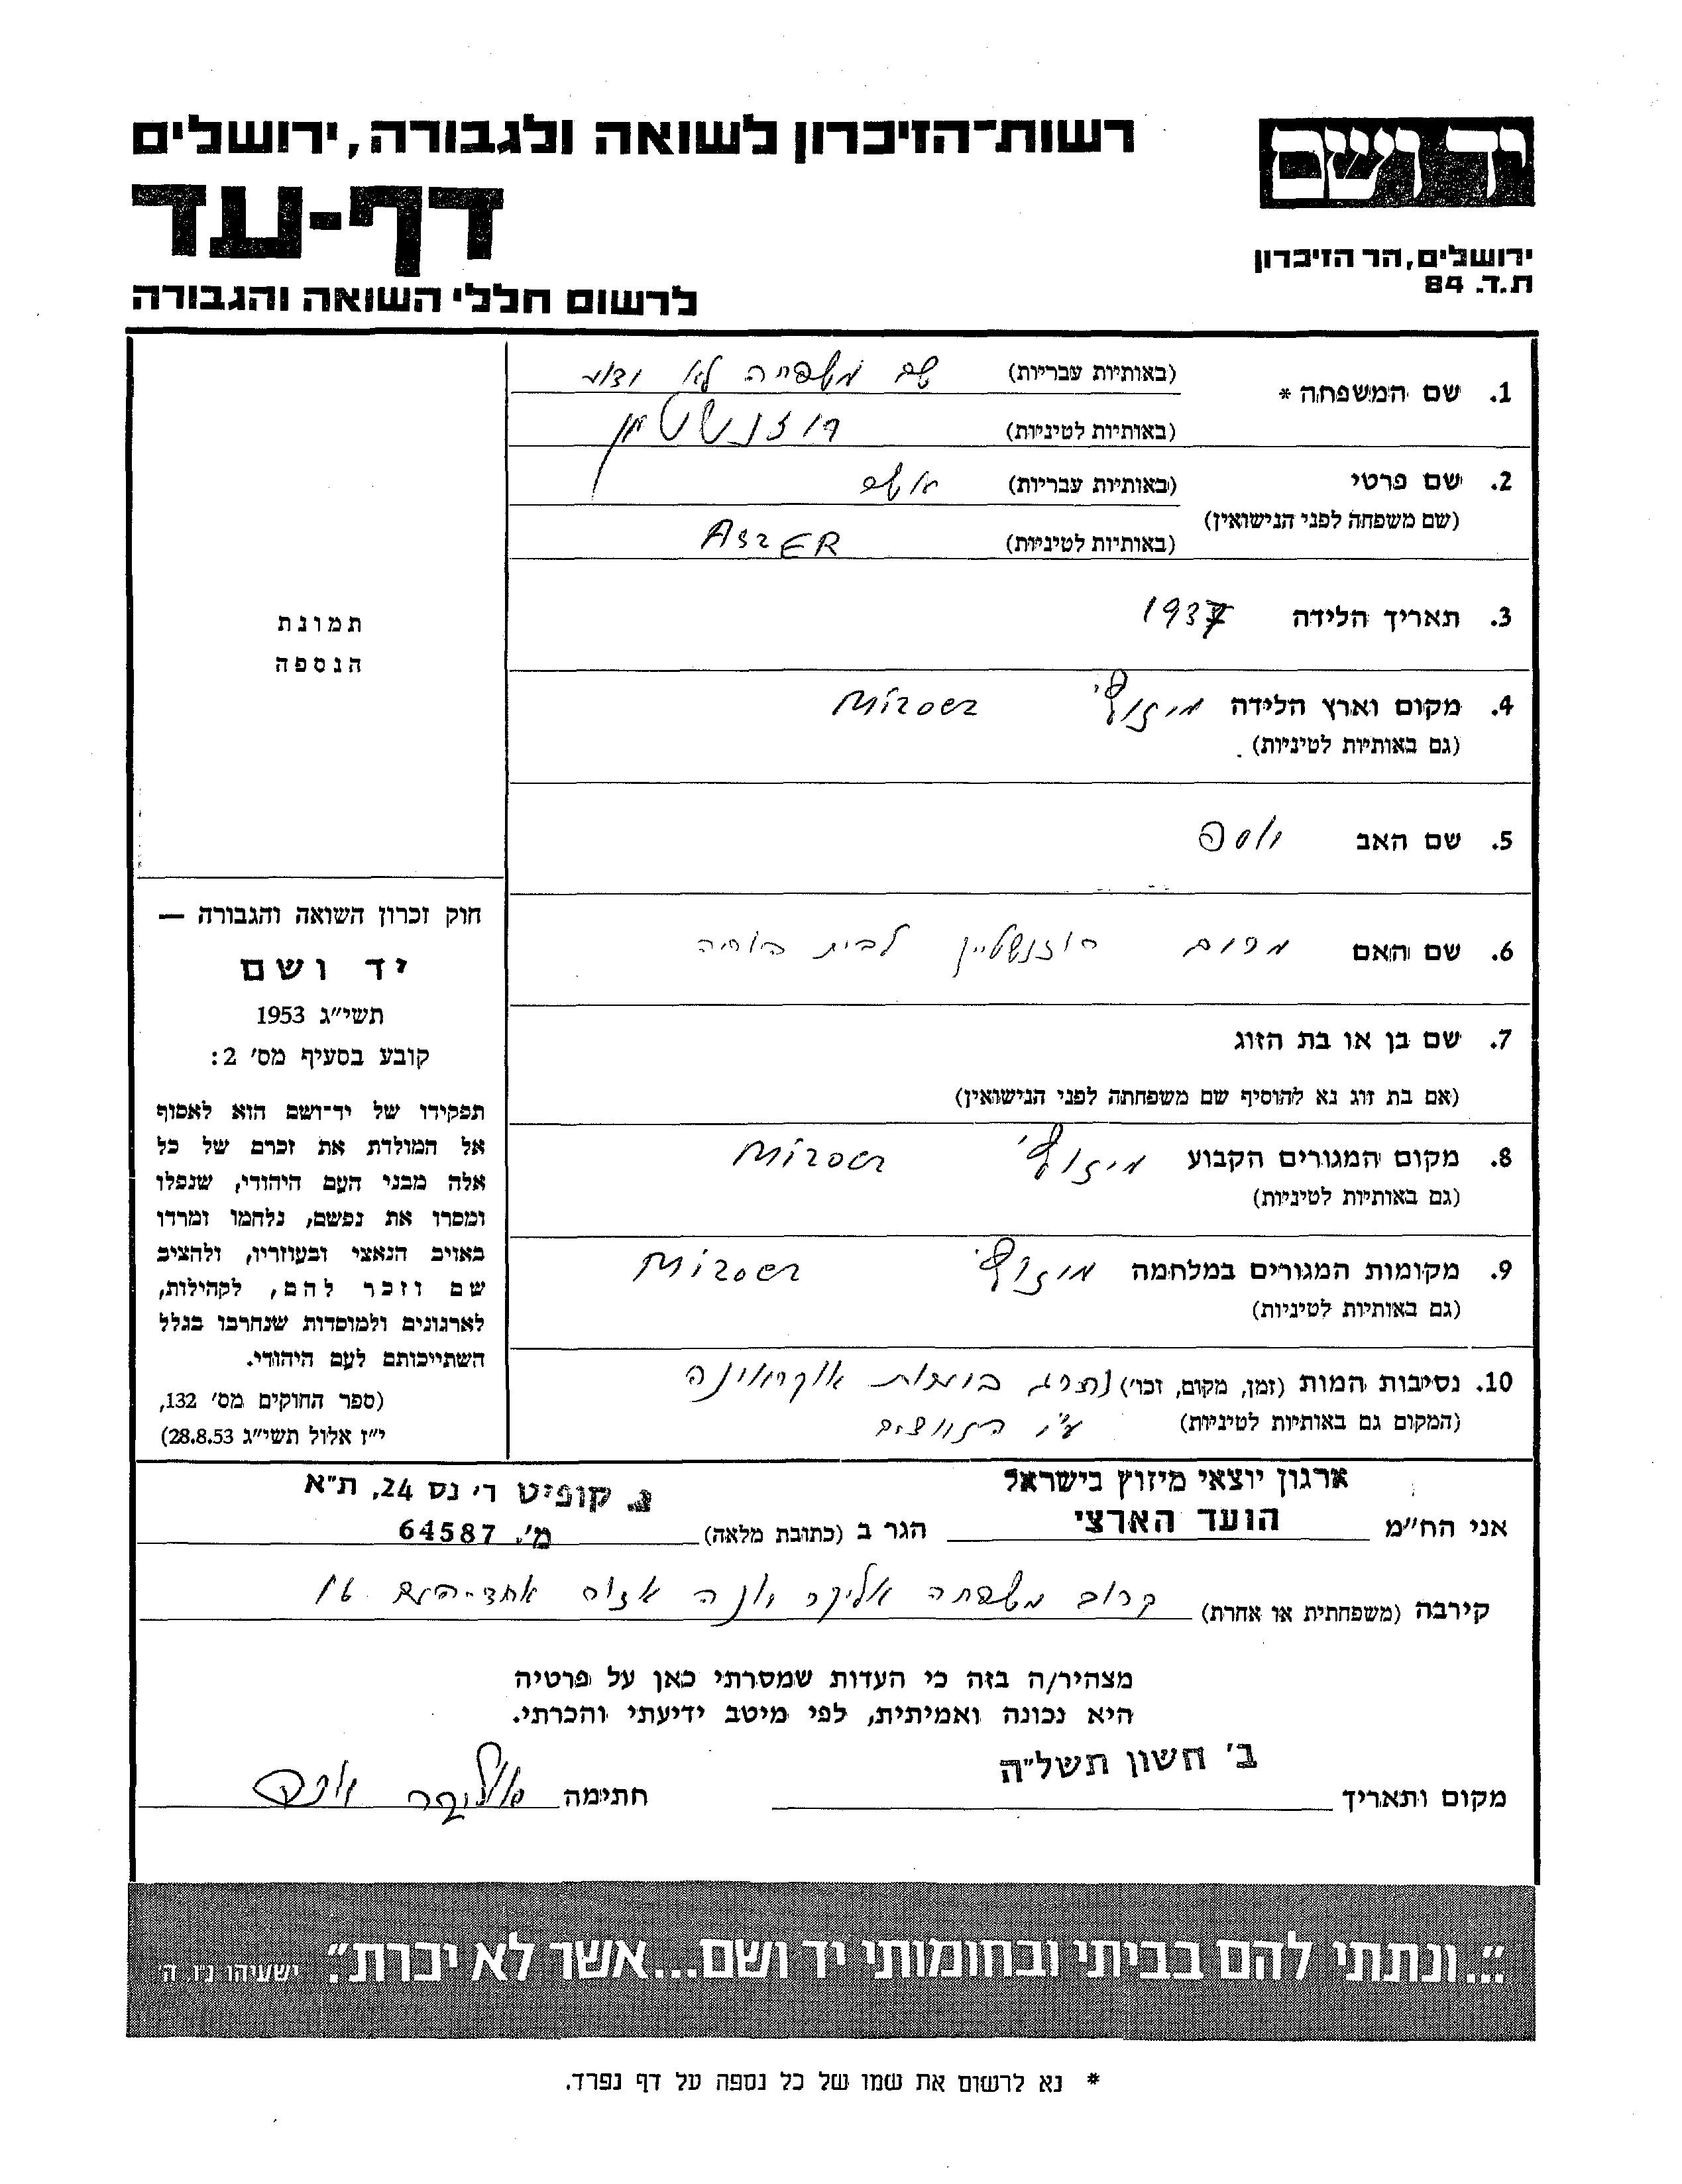 רשות־הזיכרון לשואה ולגבורה, ירושלים
דף-עד
לרשום חללי השואה והגבורה
יד ושם
ירושלים, הר הזיכרון
ת.ד. 84
1. שם המשפחה * (באותיות עבריות) שם משפחה לא ידוע
(באותיות לטיניות)
2. שם פרטי (באותיות עבריות)
(שם משפחה לפני הנישואין)
(באותיות לטיניות) ASZER
3. תאריך הלידה 1937
4. מקום וארץ הלידה מיזוץ' Mizocz
(גם באותיות לטיניות)
5. שם האב יוסף
6. שם האם מרים רוזנשטיין לבית
7. שם בן או בת הזוג
(אם בת זוג נא להוסיף שם משפחתה לפני הנישואין)
8. מקום המגורים הקבוע מיזוץ' Mizocz
(גם באותיות לטיניות)
9. מקומות המגורים במלחמה מיזוץ' Mizocz
(גם באותיות לטיניות)
10. נסיבות המות (זמן, מקום, וכו') נהרג אוקראינה
(המקום גם באותיות לטיניות) ע"י
תמונת
הנספה
חוק זכרון השואה והגבורה —
יד ושם
תשי״ג 1953
קובע בסעיף מס׳ 2:
תפקידו של יד־ושם הוא לאסוף
אל המולדת את זכרם של כל
אלה מבני העם היהודי, שנפלו
ומסרו את נפשם, נלחמו ומרדו
באויב הנאצי ובעוזריו, ולהציב
שם וזכר להם, לקהילות,
לארגונים ולמוסדות שנחרבו בגלל
השתייכותם לעם היהודי.
(ספר החוקים מס׳ 132,
י״ז אלול תשי״ג 28.8.53)
ארגון יוצאי מיזוץ בישראל נ. קופיט ר׳ נס 24, ת״א
אני הח״מ הועד הארצי הגר ב (כתובת מלאה) מ׳. 64587
קירבה (משפחתית או אחרת) קרוב משפחה אליקר יונה אזור אחד-העם 16
מצהיר/ה בזה כי העדות שמסרתי כאן על פרטיה
היא נכונה ואמיתית, לפי מיטב ידיעתי והכרתי.
מקום ותאריך ב׳ חשון תשל״ה חתימה אליקר יונה
״...ונתתי להם בביתי ובחומותי יד ושם...אשר לא יכרת״. ישעיהו נ״ו, ה׳
* נא לרשום את שמו של כל נספה על דף נפרד.